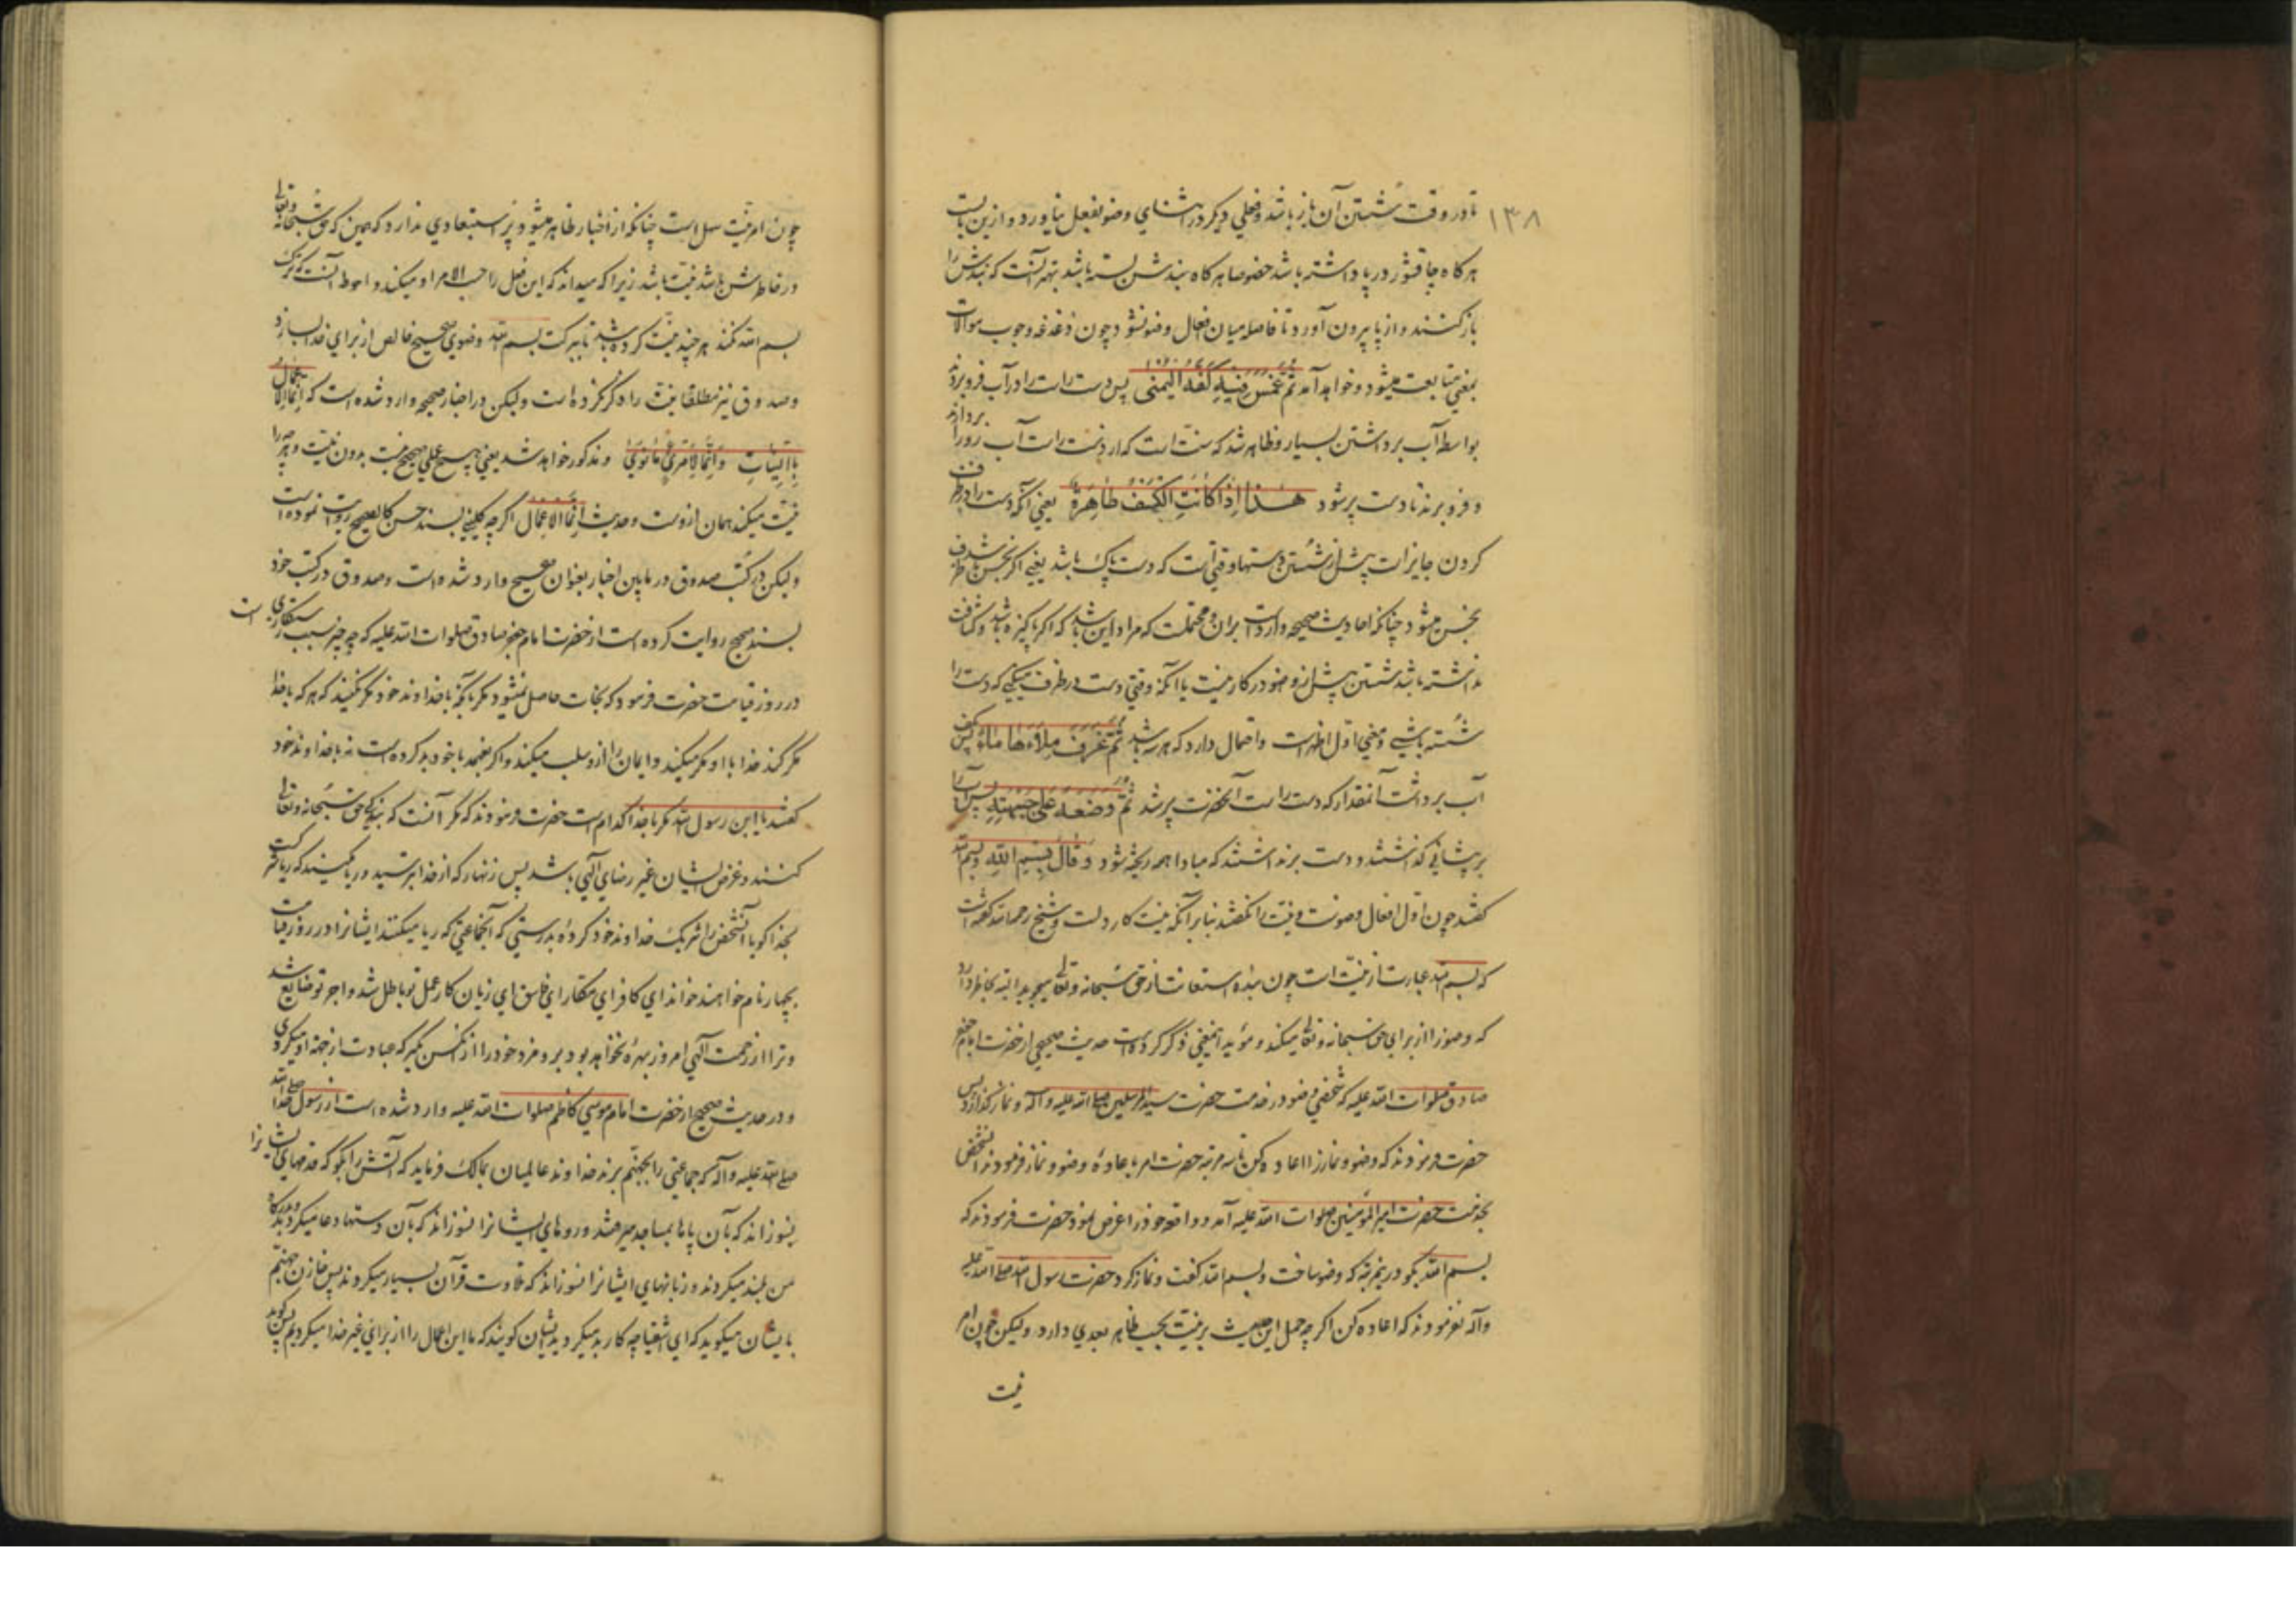 ۱۳۸
تا در وقت شستن آن باز باشد و فعلی دیگر در اثنای وضو بفعل نیاورد و ازین بابت
هرگاه چاقشور در پا داشته باشد خصوصا هرگاه بندش بسته باشد بهتر آنست که بندش را
باز کنند و از پا بیرون آورد تا فاصله میان افعال وضو نشود چون دغدغه وجوب موالات
بمعنی متابعت میشود و خواهد آمد ثُمَّ غَمَسَ فِيهِ كَفَّهُ الْيُمْنى پس دست راست را در آب فرو بردند
بواسطه آب برداشتن بسیار و ظاهر شد که سنت است که از دست راست آب رو را بردارند
و فرو برند تا دست پر شود هٰذا إِذا كانَتِ الْكَفُّ طاهِرَةً یعنی آنکه دست را در ظرف
کردن جایز است پیش از شستن دستها وقتی است که دست پاک باشد یعنی اگر نجس باشد ظرف
نجس میشود چنانکه احادیث صحیحه وارد است بران و محتملست که مراد این باشد که اگر پاکیزه باشد و کثافت
نداشته باشد شستن پیش از وضو در کار نیست یا آنکه وقتی دست در ظرف میکنی که دست را
شسته باشی و معنی اول اظهر است و احتمال دارد که هر سه باشد ثُمَّ غَرَفَ مِلْأَها ماءً پس یکف
آب برداشت آنمقدار که دست راست آنحضرت پر شد ثُمَّ وَضَعَهُ عَلى جَبْهَتِهِ پس آب را
بر پیشانی گذاشتند و دست برنداشتند که مبادا همه ریخته شود وَ قالَ بِسْمِ اللّٰهِ و بسم الله
گفتند چون اول افعال وضوست و نیت را نگفتند بنا بر آنکه نیت کار دلست و شیخ رحمه الله گفته است
که بسم الله عبارت از نیت است چون بنده استعانت از حق سبحانه و تعالی میجوید البته بخاطر دارد
که وضو را از برای حق سبحانه و تعالی میکند و مؤید اینمعنی ذکر کرده است حدیث صحیحی از حضرت امام جعفر
صادق صلوات الله علیه که شخصی وضو در خدمت حضرت سید المرسلین صلی الله علیه و آله و نماز گذارد پس
حضرت فرمودند که وضو و نماز را اعاده کن تا سه مرتبه حضرت امر باعاده وضو و نماز فرمودند آنشخص
بخدمت حضرت امیر المؤمنین صلوات الله علیه آمد و واقعه خود را عرض نمود حضرت فرمودند که
بسم الله بگو درینمرتبه که وضو ساخت و بسم الله گفت و نماز کرد حضرت رسول الله صلی الله علیه
و آله نفرمودند که اعاده کن اگر چه حمل این حدیث بر نیت بحسب ظاهر بعدی دارد و لیکن چون امر
نیت
چون امر نیت سهل است چنانکه از اخبار ظاهر میشود پر استبعادی ندارد که همین که حق سبحانه و تعالی
در خاطرش باشد نیت باشد زیرا که میداند که این فعل را حسب الامر او میکند و احوط آنست که ترک
بسم الله نکند هر چند نیت کرده باشد تا ببرکت بسم الله وضوی صحیح خالص از برای خدا بسازد
و صدوق نیز مطلقا نیت را ذکر نکرده است و لیکن در اخبار صحیحه وارد شده است که إِنَّما الأعمال
بِالنِّيَّاتِ وَ إِنَّما لِامْرِئٍ ما نَوى و مذکور خواهد شد یعنی هیچ عملی صحیح نیست بدون نیت و هر چه را
نیت میکند همان ازوست و حدیث إِنَّما الأعمال اگر چه کلینی بسند حسن کالصحیح روایت نموده است
و لیکن در کتب صدوق در مابین اخبار بعنوان صحیح وارد شده است و صدوق در کتب خود
بسند صحیح روایت کرده است از حضرت امام جعفر صادق صلوات الله علیه که چه چیز سبب رستگاری است
در روز قیامت حضرت فرمود که نجات حاصل نمیشود مگر بآنکه با خداوند خود مکر نکنید که هر که با خدا
مکر کند خدا با او مکر میکند و ایمان را ازو سلب میکند و اگر بفهمد با خود بد کرده است نه با خداوند خود
گفتند یا ابن رسول الله مکر با خدا کدام است حضرت فرمودند که مکر آنست که بندگی حق سبحانه و تعالی
کنند و غرض ایشان غیر رضای الهی باشد پس زنهار که از خدا بترسید و ریا مکنید که ریا شرکست
بخدا گویا آنشخص را شریک خداوند خود کرده بدرستی که آنجماعتی که ریا میکنند ایشانرا در روز قیامت
بچهار نام خواهند خواند ای کافر ای مکار ای فاسق ای زیان کار عمل تو باطل شد و اجر تو ضایع شد
و ترا از رحمت الهی امروز بهره نخواهد بود برو مزد خود را از آنکس بگیر که عبادت از جهة او میکردی
و در حدیث صحیح از حضرت امام موسی کاظم صلوات الله علیه وارد شده است از رسول خدا صلی الله
صلی الله علیه و آله که جماعتی را بجهنم برند خداوند عالمیان بمالک فرماید که آتش را بگو که قدمهای ایشانرا
نسوزاند که بآن پاها بمساجد میرفتند و روهای ایشانرا نسوزاند که بآن دستها دعا میکردند و بدرگاه
من بلند میکردند و زبانهای ایشانرا نسوزاند که تلاوت قرآن بسیار میکردند پس خازن جهنم
بایشان میگوید که ای اشقیا چه کار بد میکردید ایشان گویند که ما این اعمال را از برای غیر خدا میکردیم پس گوید